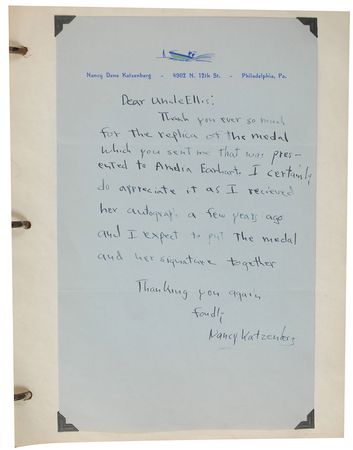 Nancy Dene Katzenberg - 4902 N. 12th St. - Philadelphia, Pa.
Dear Uncle Ellis:
Thank you ever so much
for the replica of the medal
which you sent me that was pres-
ented to Amelia Earhart. I certainly
do appreciate it as I recieved
her autograph a few years ago
and I expect to put the medal
and her signature together
Thanking you again
fondly
Nancy Katzenberg